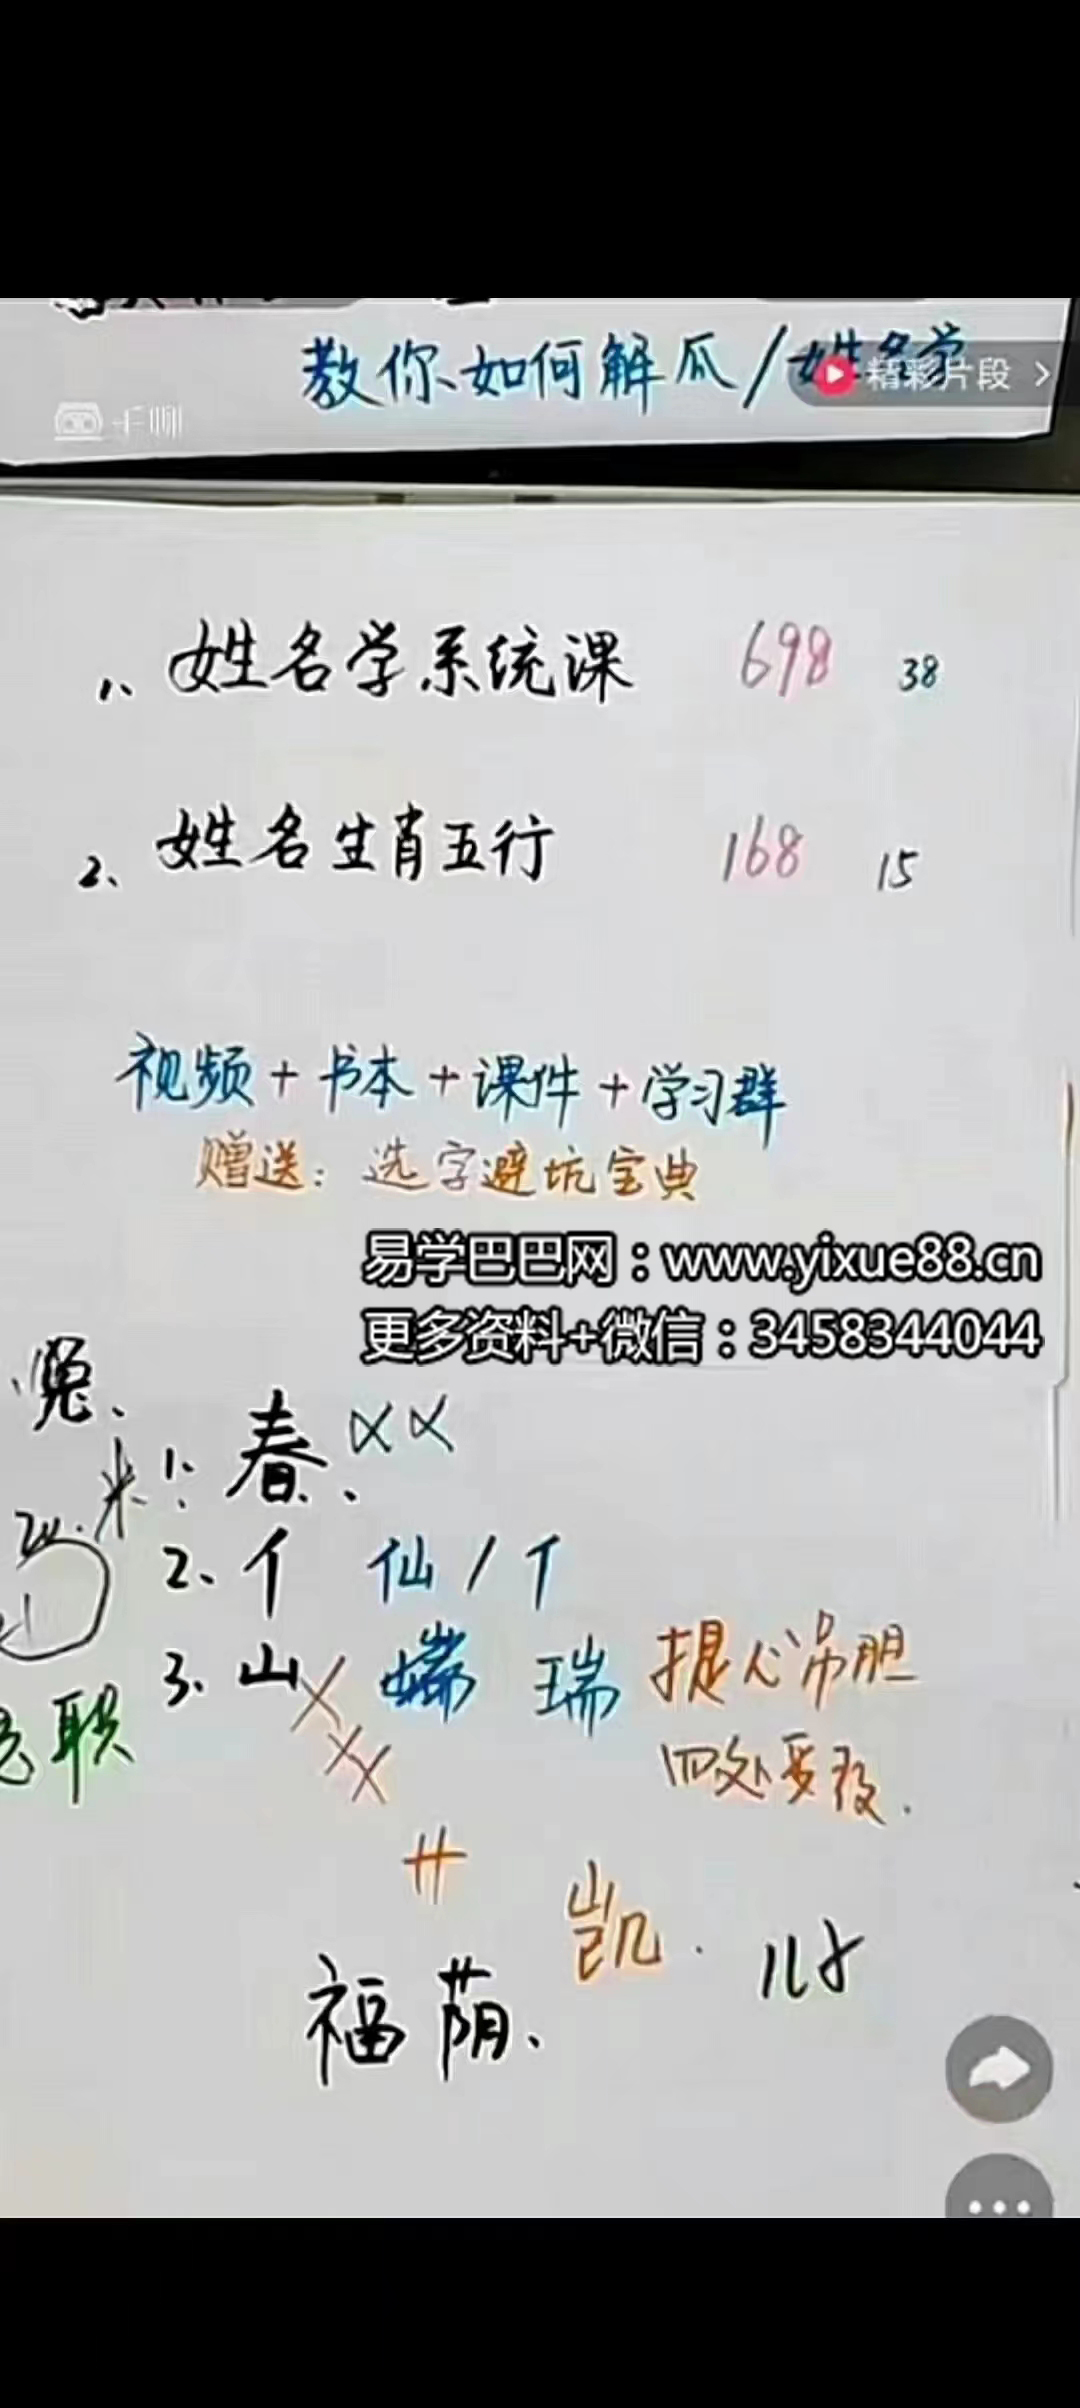 教你如何解瓜/姓名学
精彩片段
千聊
1、姓名学系统课 698 38
2、姓名生肖五行 168 15
视频+书本+课件+学习群
赠送：选字避坑宝典
易学巴巴网：www.yixue88.cn
更多资料+微信：3458344044
兔、
1、春、
2、个 仙/个
3、山 瑞 提心吊胆
职
四处要投.
凯.
福荫、